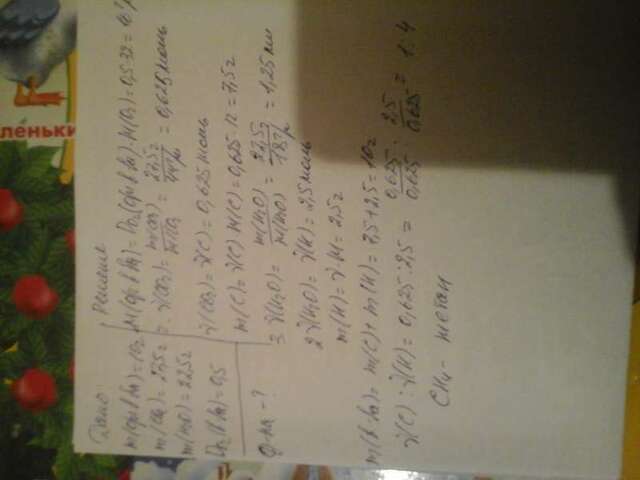 Дано:
m(орг в-ва)=10г
m(CO2)=27,5г
m(H2O)=22,5г
DO2(в-ва)=0,5
Ф-ла-?
Решение
M(орг в-ва)=DO2(орг в-ва)·M(O2)=0,5·32=16
2. ν(CO2)=m(CO2)/M(CO2)=27,5г/44г/м=0,625моль
ν(CO2)=ν(C)=0,625моль
m(C)=ν(C)·M(C)=0,625·12=7,5г
3. ν(H2O)=m(H2O)/M(H2O)=22,5г/18г/м=1,25
2ν(H2O)=ν(H)=2,5моль
m(H)=ν·M=2,5г
m(в-ва)=m(C)+m(H)=7,5+2,5=10г
ν(C):ν(H)=0,625:2,5=0,625/0,625:2,5/0,625=1:4
CH4-метан
леньки